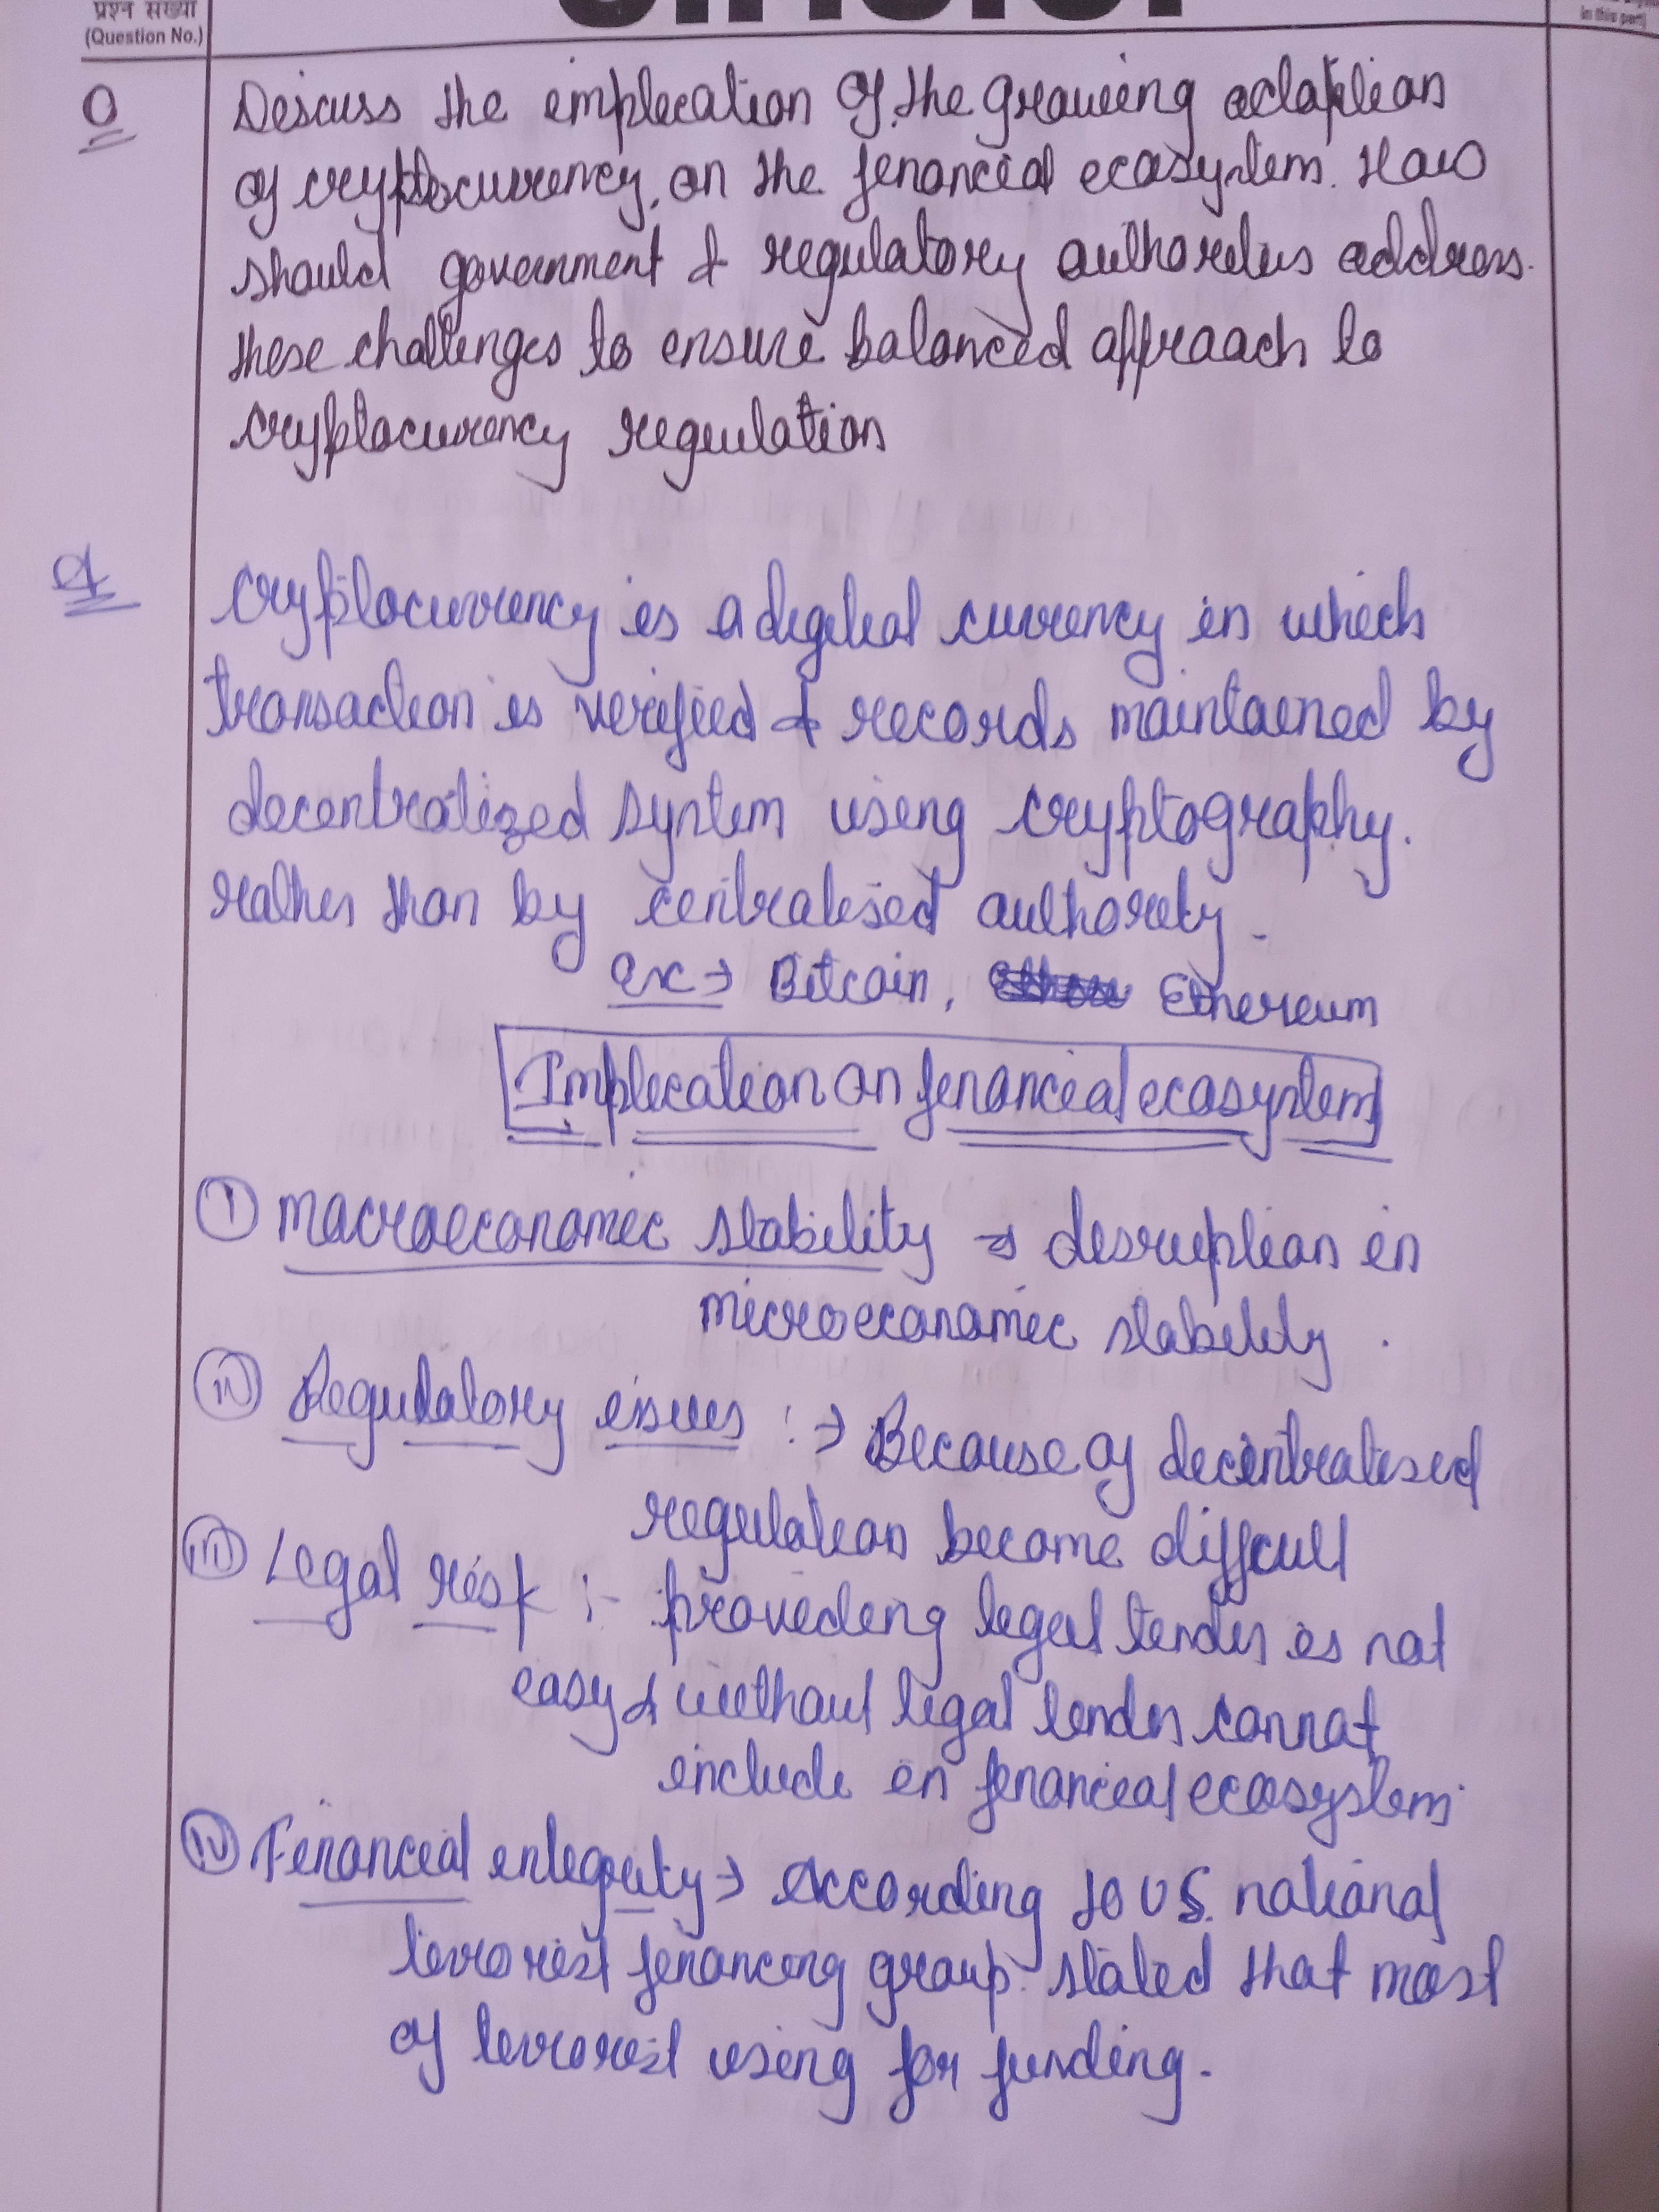 प्रश्न संख्या
(Question No.)
in this part)
Q
Discuss the implication of the growing adaption
of cryptocurrency, on the financial ecosystem. How
should government & regulatory authorities address
these challenges to ensure balanced approach to
cryptocurrency regulation
Cryptocurrency is a digital currency in which
transaction is verified & records maintained by
decentralized system using cryptography.
rather than by centralised authority.
ex → Bitcoin, Ethereum
Implication on financial ecosystem
(i) Macroeconomic stability → disruption in
microeconomic stability.
(ii) Regulatory issues :→ Because of decentralised
regulation become difficult
(iii) Legal risk :- providing legal tender is not
easy & without legal tender cannot
include in financial ecosystem.
(iv) Financial integrity → According to US. national
terrorist financing group. stated that most
of terrorist using for funding.